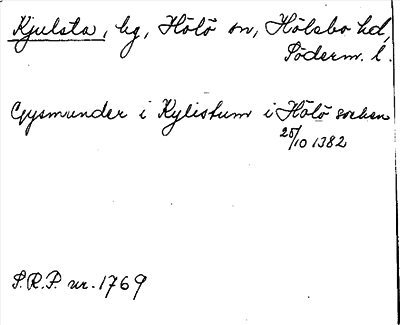 Kjulsta, by, Hölö sn, Hölebo hd,
Söderm. l.
Gysmunder i Kylistum i Hölö socken
25/10 1382
S.R.P. nr. 1769